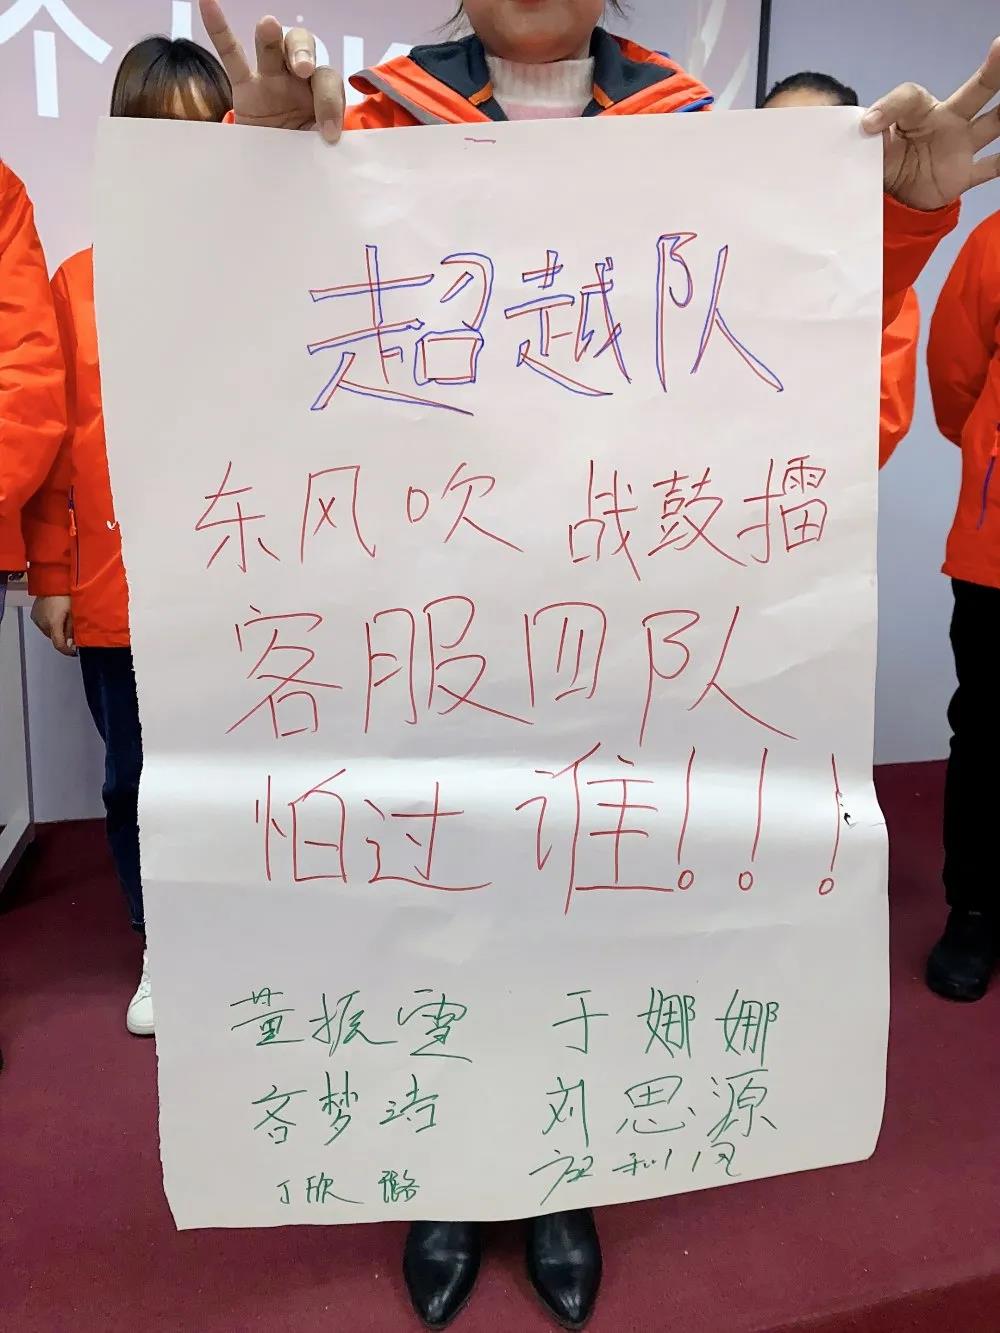 个
超越队
东风吹 战鼓擂
客服四队
怕过谁！！！
董振雯 于娜娜
客梦洁 刘思源
丁欣璐